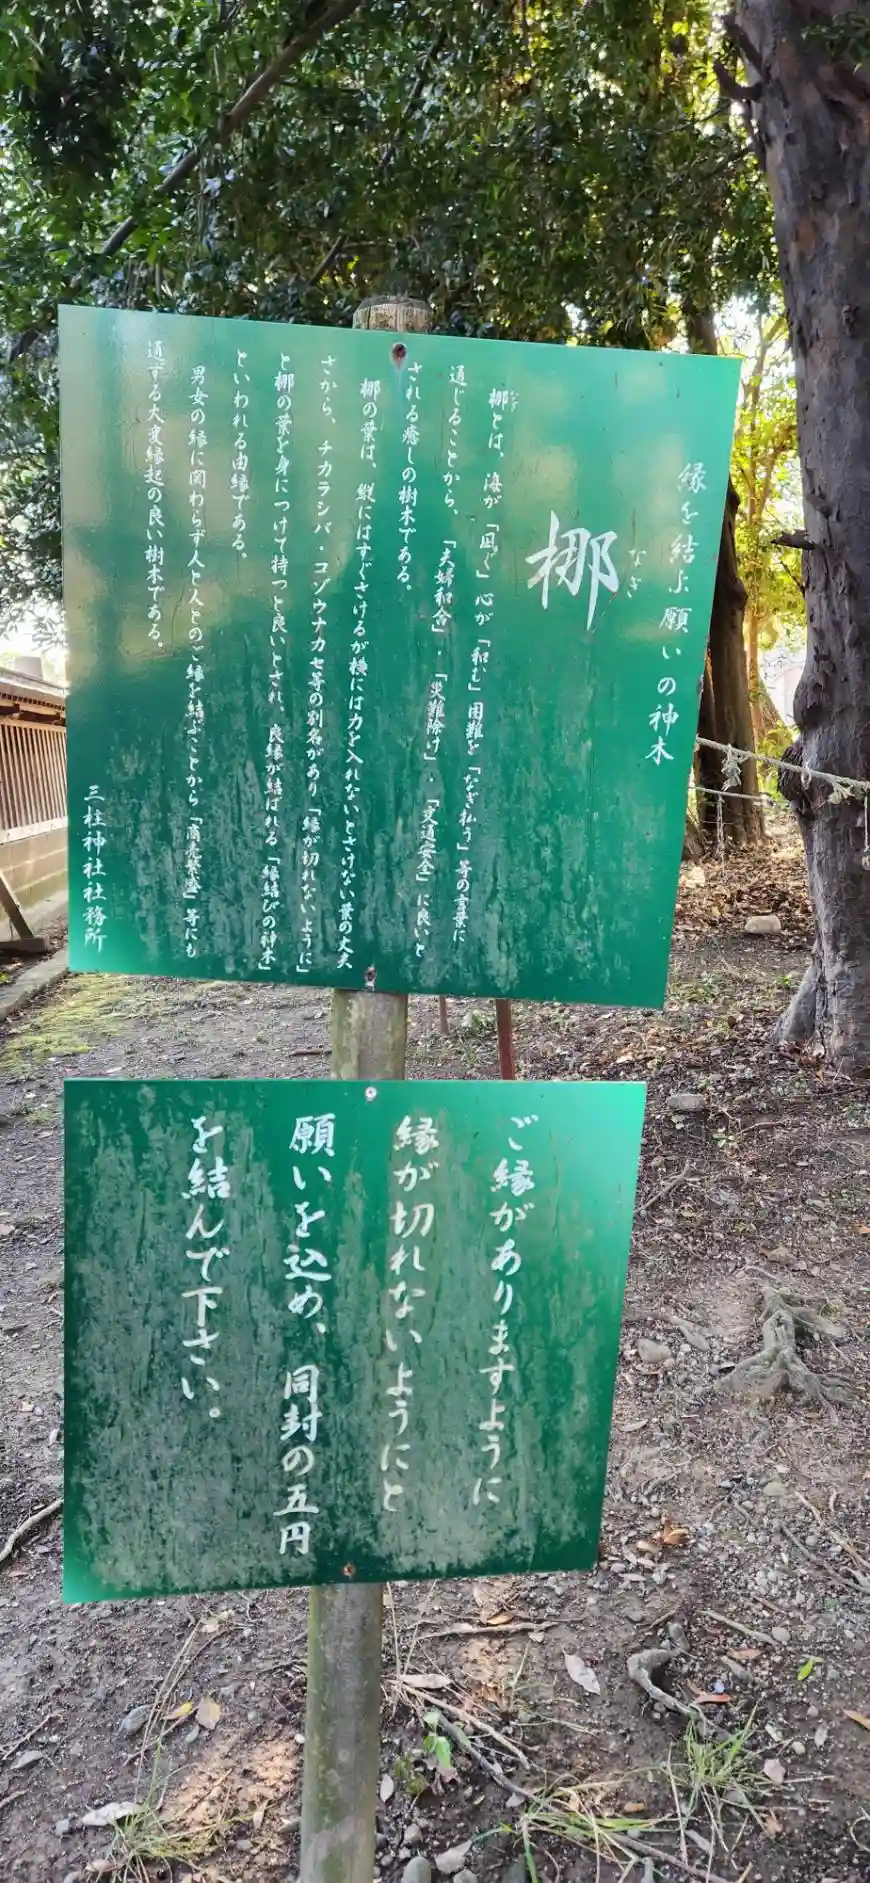 縁を結ぶ願いの神木
なぎ
梛
なぎ
梛とは、海が「凪ぐ」心が「和む」困難を「なぎ払う」等の言葉に
通じることから、「夫婦和合」・「災難除け」・「交通安全」に良いと
される癒しの樹木である。
梛の葉は、縦にはすぐさけるが横には力を入れないとさけない葉の丈夫
さから、チカラシバ・コゾウナカセ等の別名があり「縁が切れないように」
と梛の葉を身につけて持つと良いとされ、良縁が結ばれる「縁結びの神木」
といわれる由縁である。
男女の縁に関わらず人と人とのご縁を結ぶことから「商売繁盛」等にも
通ずる大変縁起の良い樹木である。
三柱神社社務所
ご縁がありますように
縁が切れないようにと
願いを込め、同封の五円
を結んで下さい。